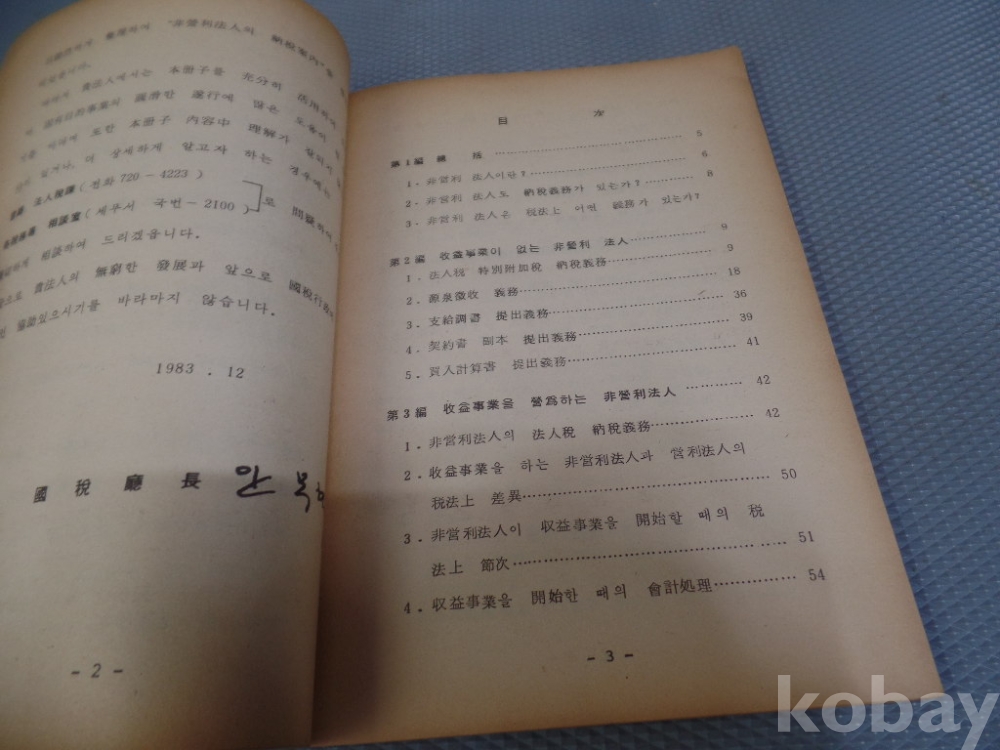 非營利法人의 納稅案内"를
하여 貴法人에서는 本册子를 充分히 活用
固有目的事業의 圓滑한 遂行에 많은 도움이
또한 本册子 内容中 理解가
있거나, 더 상세하게 알고자 하는 경우에는
法人稅課 (전화 720-4223)
相談室 (세무서 국번-2100) 로 問議하시
하게 相談하여 드리겠읍니다.
으로 貴法人의 無窮한 發展과 앞으로 國稅行政
협조있으시기를 바라마지 않습니다.
1983 . 12
國 稅 廳 長
- 2 -
目 次
第1編 總 說 5
1. 非営利 法人이란? 6
2. 非営利 法人도 納稅義務가 있는가? 8
3. 非営利 法人은 稅法上 어떤 義務가 있는가?
第2編 收益事業이 없는 非營利 法人 9
1. 法人稅 特別附加稅 納稅義務 9
2. 源泉徵收 義務 18
3. 支給調書 提出義務 36
4. 契約書 副本 提出義務 39
5. 買入計算書 提出義務 41
第3編 收益事業을 營爲하는 非營利法人 42
1. 非営利法人의 法人稅 納稅義務 42
2. 收益事業을 하는 非営利法人과 営利法人의
稅法上 差異 50
3. 非営利法人이 収益事業을 開始한 때의 稅
法上 節次 51
4. 収益事業을 開始한 때의 會計処理 54
- 3 -
kobay